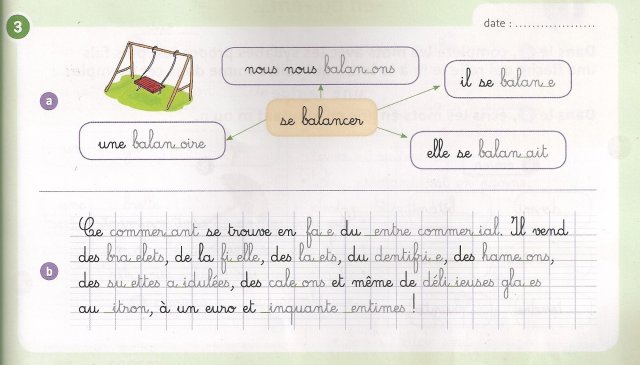 3
date : ...................
nous nous balan_ons
il se balan_e
a
se balancer
une balan_oire
elle se balan_ait
Ce commer_ant se trouve en fa_e du _entre commer_ial. Il vend
des bra_elets, de la fi_elle, des la_ets, du dentifri_e, des hame_ons,
b
des su_ettes a_idulées, des cale_ons et même de déli_ieuses gla_es
au _itron, à un euro et _inquante _entimes !